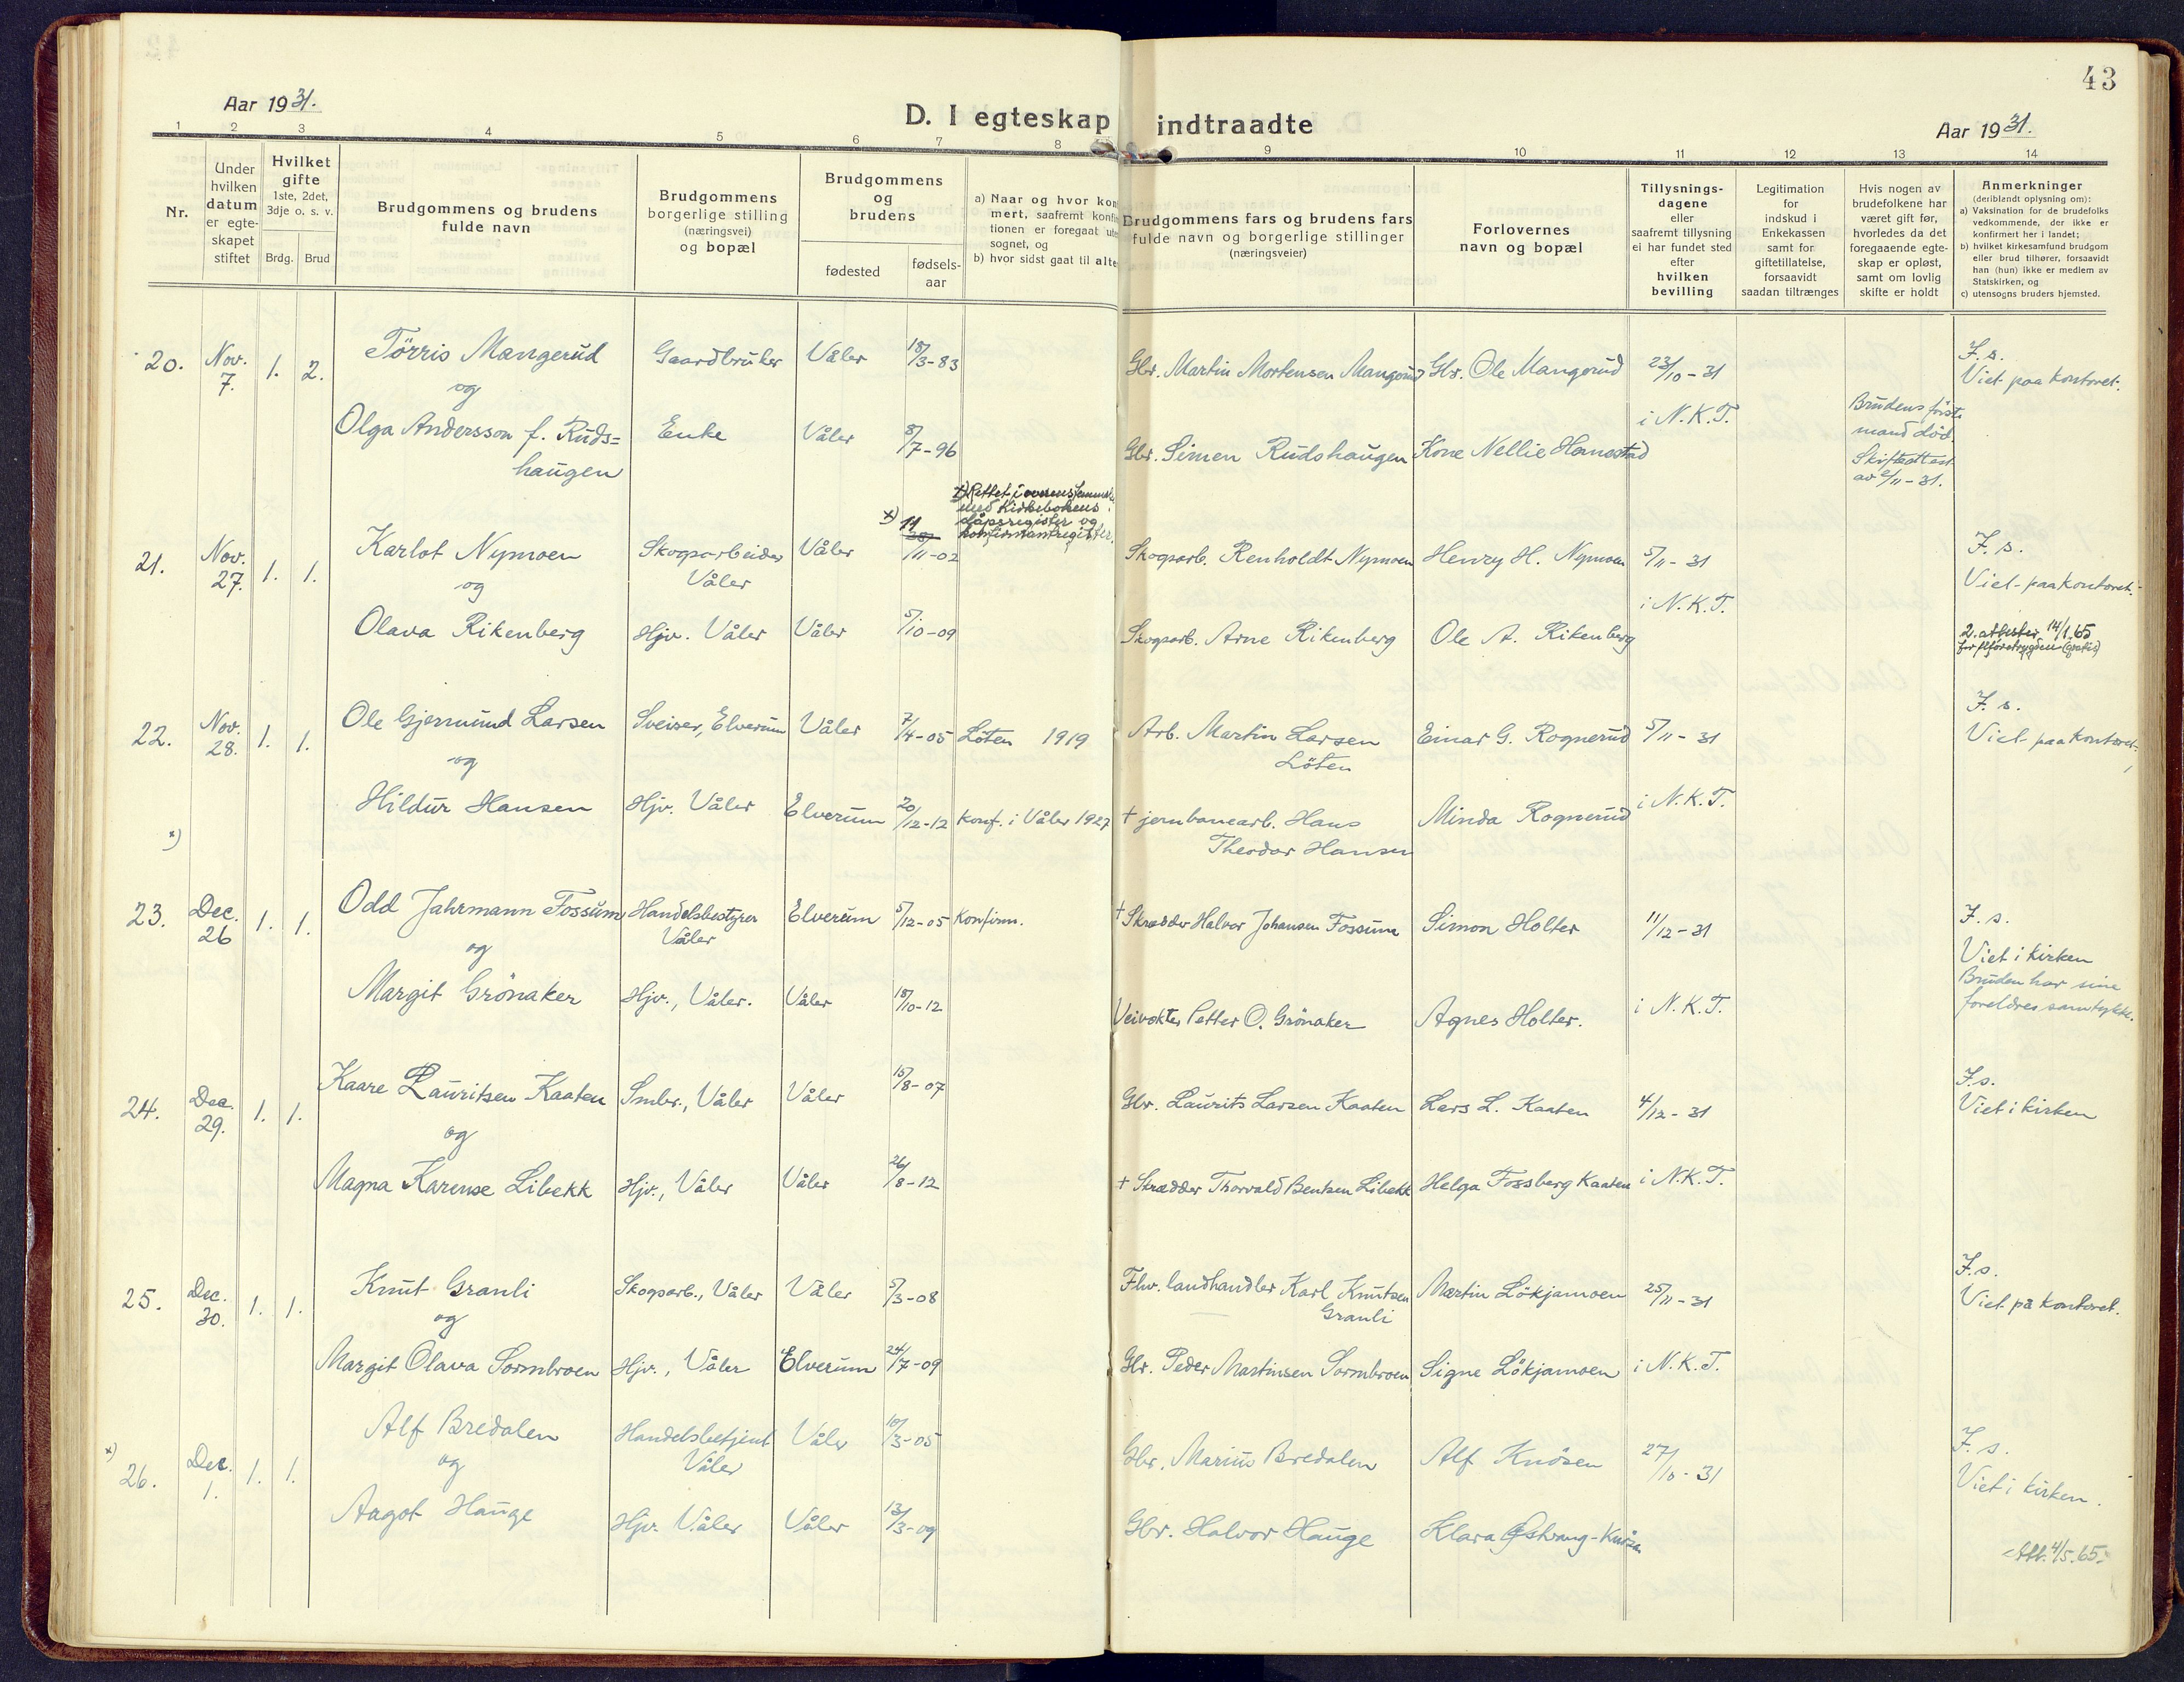 43
Aar 1931.
D. I egteskap indtraadte
Aar 1931.
1 2 3 4 5 6 7 8 9 10 11 12 13 14
Nr.
Under
hvilken
datum
er egte-
skapet
stiftet
Hvilket
gifte
1ste, 2det,
3dje o. s. v.
Brdg. Brud
Brudgommens og brudens
fulde navn
Brudgommens
borgerlige stilling
(næringsvei)
og bopæl
Brudgommens
og
brudens
fødested
fødsels-
aar
a) Naar og hvor kon
mert, saafremt konfir
tionen er foregaat ute
sognet, og
b) hvor sidst gaat til alte
Brudgommens fars og brudens fars
fulde navn og borgerlige stillinger
(næringsveier)
Forlovernes
navn og bopæl
Tillysnings-
dagene
eller
saafremt tillysning
ei har fundet sted
efter
hvilken
bevilling
Legitimation
for
indskud i
Enkekassen
samt for
giftetillatelse,
forsaavidt
saadan tiltrænges
Hvis nogen av
brudefolkene har
været gift før,
hvorledes da det
foregaaende egte-
skap er opløst,
samt om lovlig
skifte er holdt
Anmerkninger
(deriblandt oplysning om):
a) Vaksination for de brudefolks
vedkommende, der ikke er
konfirmert her i landet;
b) hvilket kirkesamfund brudgom
eller brud tilhører, forsaavidt
han (hun) ikke er medlem av
Statskirken, og
c) utensogns bruders hjemsted.
20. Nov. 7. 1. 2. Tørris Mangerud Gaardbruker Våler 18/3-83 Gbr. Martin Mortensen Mangerud Gbr. Ole Mangerud 23/10-31 F. s.
Viet paa kontoret.
og
i N.K.T. Brudens første
mand død.
Skifteattest
av 2/11-31.
Olga Andersson f. Ruds=
haugen Enke Våler 8/7-96 Gbr. Simen Rudshaugen Kone Nellie Hamostad
x) Rettet i overensstemmelse
med Kirkebokens
dåpsregister og
konfirmantregister.
21. Nov. 27. 1. 1. Karlot Nymoen Skogsarbeider
Våler Våler x) 11/11-02 Skogsarb. Renholdt Nymoen Henry H. Nymoen 5/11-31 F. s.
Viet paa kontoret.
og
i N.K.T.
Olava Rikenberg Hjv. Våler Våler 5/10-09 Skogsarb. Arne Rikenberg Ole A. Rikenberg 2. attester 14/1.65
22. Nov. 28. 1. 1. Ole Gjermund Larsen Sveiser, Elverum Våler 7/4-05 Löten 1919 Arb. Martin Larsen
Löten Einar G. Rognerud 5/11-31 F. s.
Viet paa kontoret.
og
Hildur Hansen Hjv. Våler Elverum 20/12-12 Konf. i Våler 1927 † jernbanearb. Hans
Theodor Hansen Minda Rognerud i N.K.T.
x)
23. Dec. 26 1. 1. Odd Jahrmann Fossum Handelsbestyrer
Våler Elverum 5/12-05 Konfirm. † Skrædder Halvor Johansen Fossum Simon Holter 11/12-31 F. s.
Viet i kirken
Bruden har sine
foreldres samtykke.
og
Margit Grönaker Hjv., Våler. Våler 18/10-12 Veivokter Petter O. Grönaker Agnes Holter. i N.K.T.
24. Dec. 29. 1. 1. Kaare Lauritsen Kaaten Smbr., Våler Våler 15/8-07 Gbr. Laurits Larsen Kaaten Lars L. Kaaten 4/12-31 F.s.
Viet i kirken
og
Magna Karense Libekk Hjv., Våler Våler 26/8-12 † Skrædder Thorvald Bentsen Libekk Helga Fossberg Kaaten i N.K.T.
25. Dec. 30. 1. 1. Knut Granli Skogsarb., Våler Våler 5/3-08 Fhv. landhandler Karl Knutsen
Granli Martin Lökjamoen 25/11-31 F.s.
Viet på kontoret.
og
Margit Olava Sormbroen Hjv., Våler Elverum 24/7-09 Gbr. Peder Martinsen Sormbroen Signe Lökjamoen i N.K.T.
x) 26. Dec. 1. 1. 1. Alf Bredalen Handelsbetjent
Våler Våler 10/3-05 Gbr. Marius Bredalen Alf Knösen 27/10-31 F. s.
Viet i kirken.
og
Aagot Hauge Hjv. Våler Våler 13/3-09 Gbr. Halvor Hauge Klara Østvang-Knösen
Att. 4/5.65.